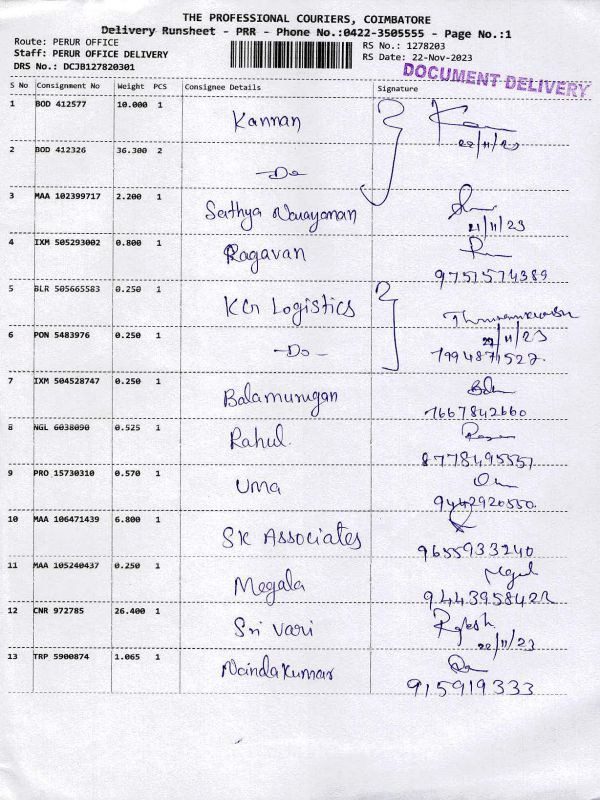 THE PROFESSIONAL COURIERS, COIMBATORE
Delivery Runsheet - PRR - Phone No.:0422-3505555 - Page No.:1
Route: PERUR OFFICE
Staff: PERUR OFFICE DELIVERY
DRS No.: DCJB127820301
RS No.: 1278203
RS Date: 22-Nov-2023
DOCUMENT DELIVERY
S No Consignment No Weight PCS Consignee Details Signature
1 BOD 412577 10.000 1 Kannan
22/11/23
2 BOD 412326 36.300 2 -Do
3 MAA 102399717 2.200 1 Sathya Narayanan
21/11/23
4 IXM 505293002 0.800 1 Ragavan
9751574389
5 BLR 505665583 0.250 1 KG Logistics
22/11/23
6 PON 5483976 0.250 1 -Do-
7994871527.
7 IXM 504528747 0.250 1 Balamurugan
7667842660
8 NGL 6038090 0.525 1 Rahul.
8778495557
9 PRO 15730310 0.570 1 Uma
9442920550.
10 MAA 106471439 6.800 1 SK Associates
9655933240
11 MAA 105240437 0.250 1 Megala
Megal
12 CNR 972785 26.400 1 Sri Vari Rajesh
22/11/23
13 TRP 5900874 1.065 1 Nandakumar
915919333